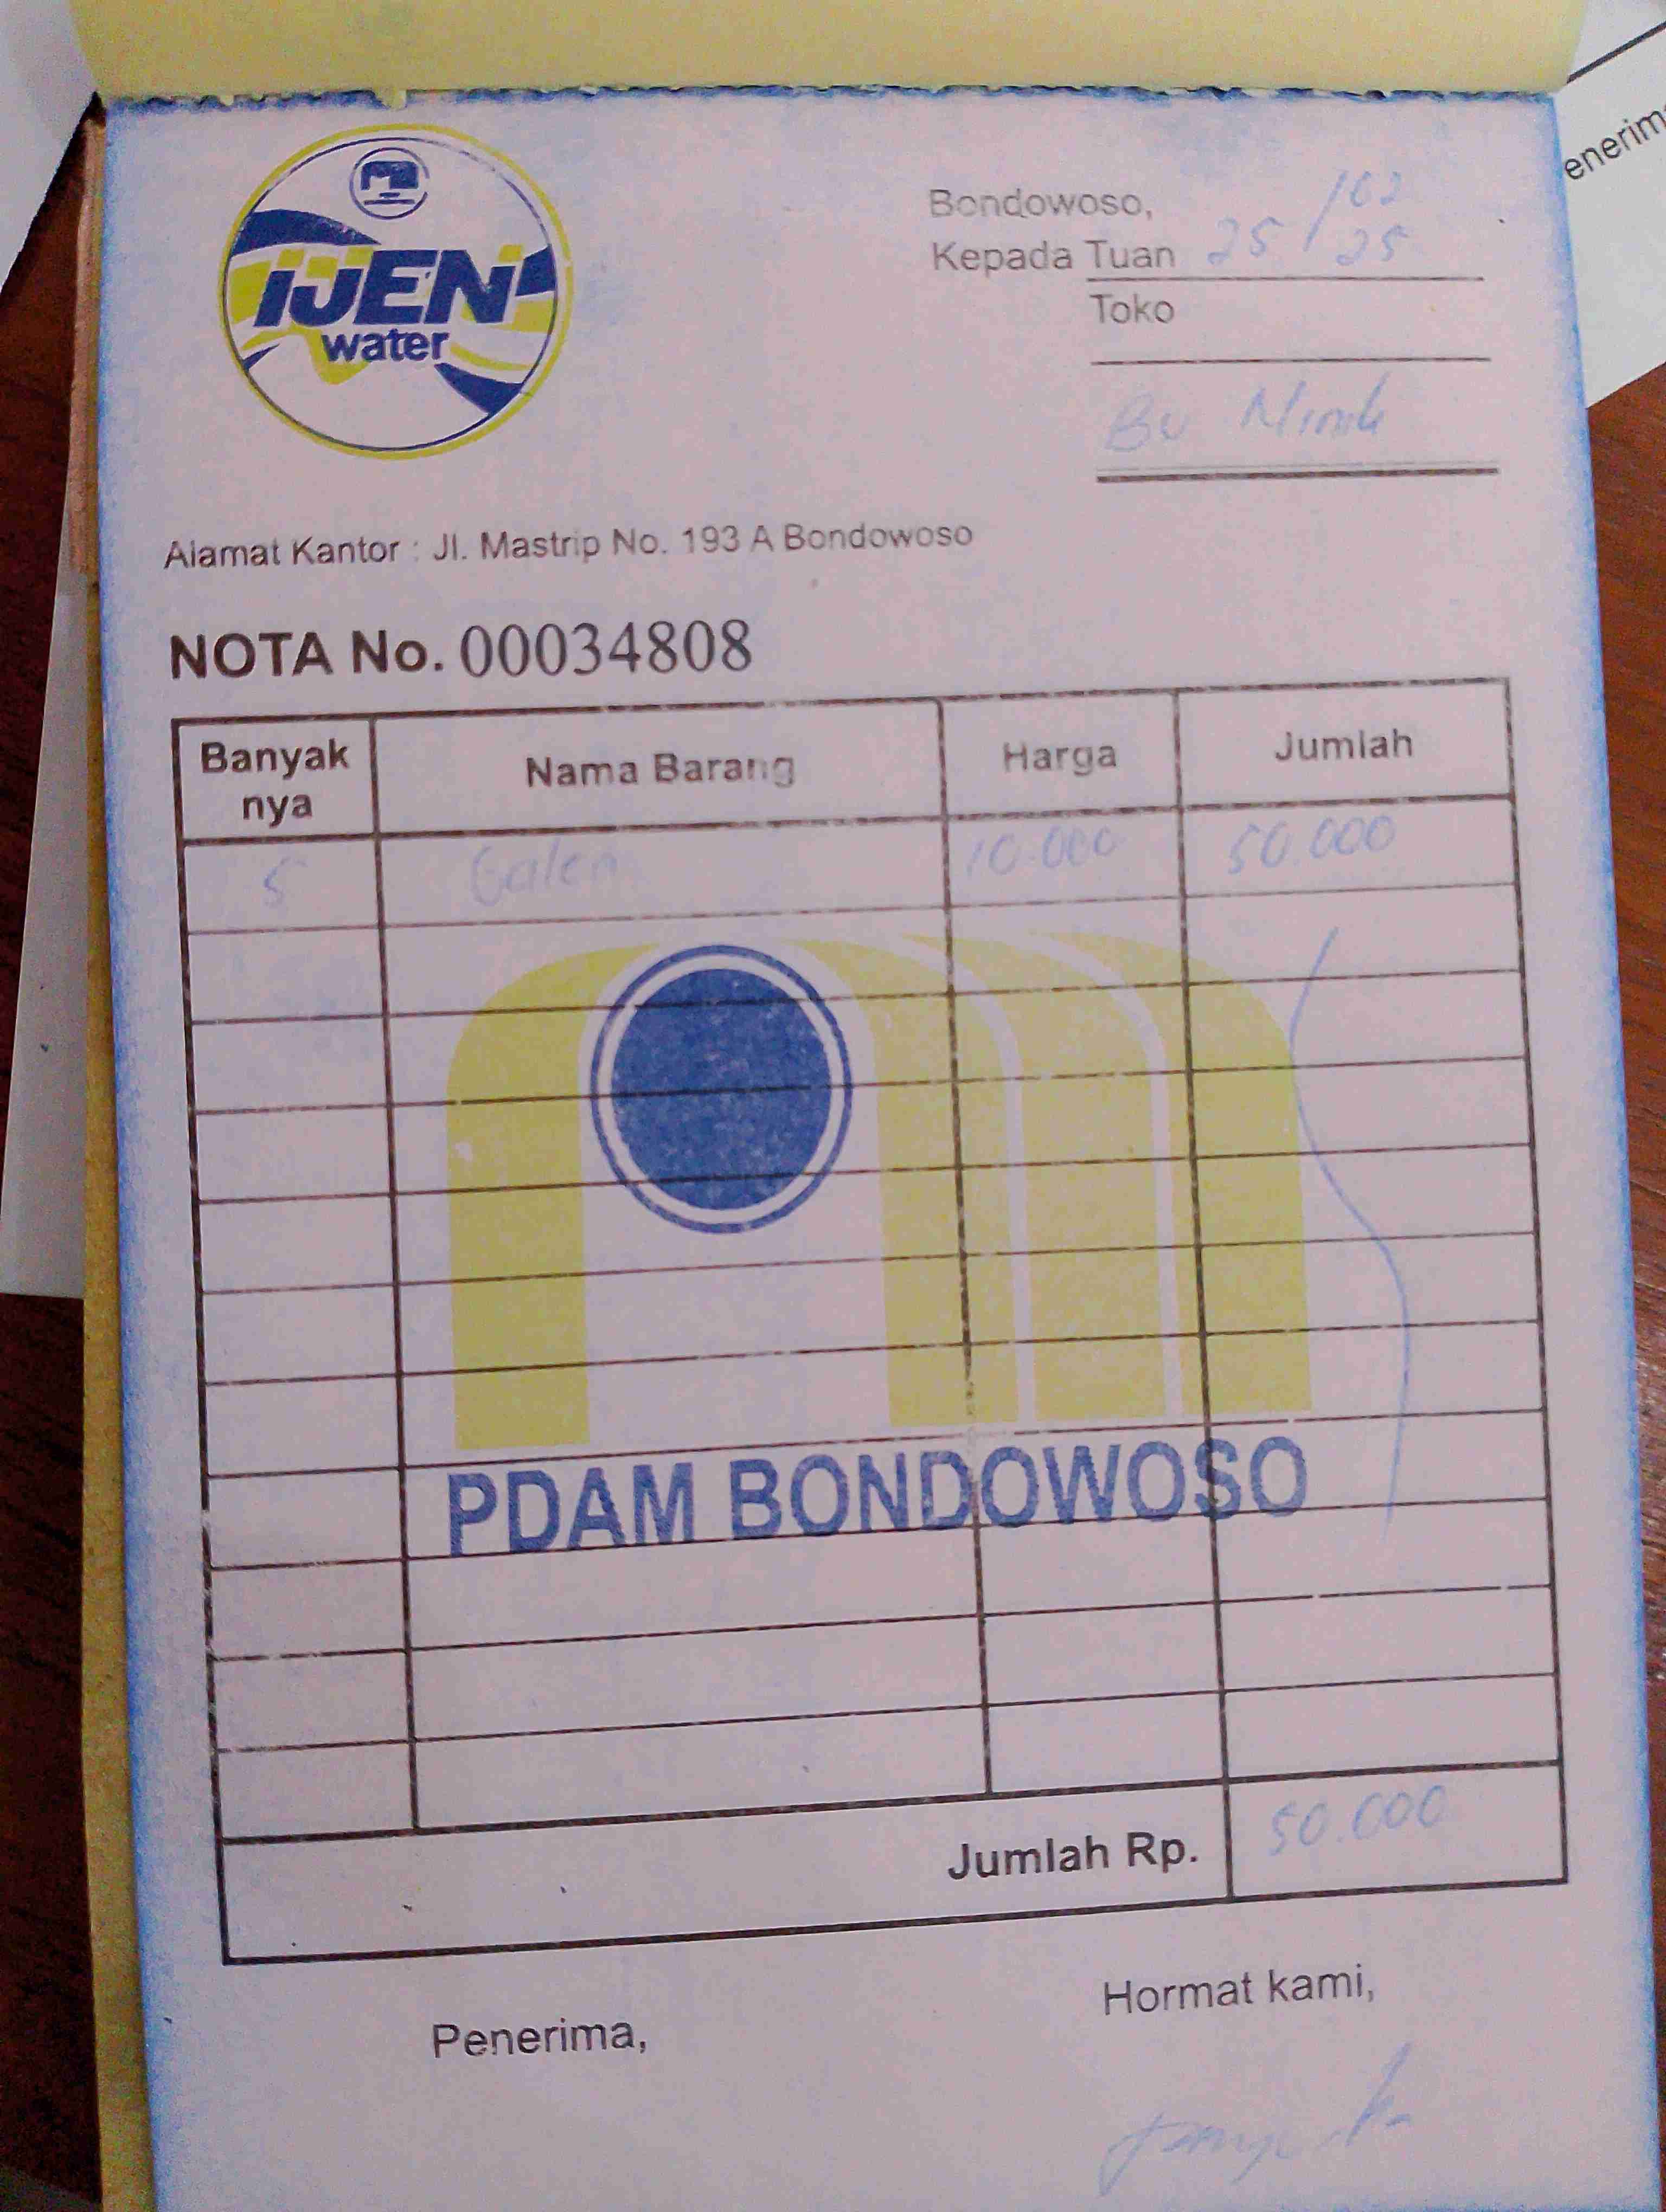 enerima
IJEN
water
Bondowoso,
25/02
Kepada Tuan 25
Toko
Bu Ninik
Alamat Kantor : Jl. Mastrip No. 193 A Bondowoso
NOTA No. 00034808
Banyak nya Nama Barang Harga Jumlah
5 Galon 10.000 50.000
PDAM BONDOWOSO
Jumlah Rp. 50.000
Penerima, Hormat kami,